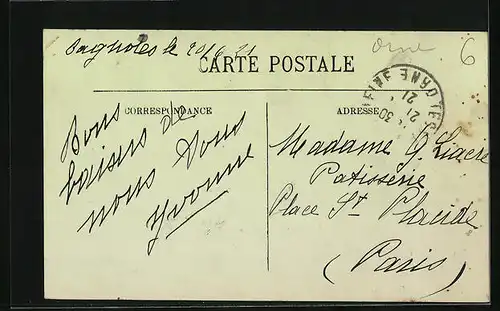 Bagnoles le 20/6 21
Orne
6
CARTE POSTALE
CORRESPONDANCE
ADRESSE
Bons
baisers de
nous Vous
Yvonne
Madame G.
Patisserie
Place St
(Paris)